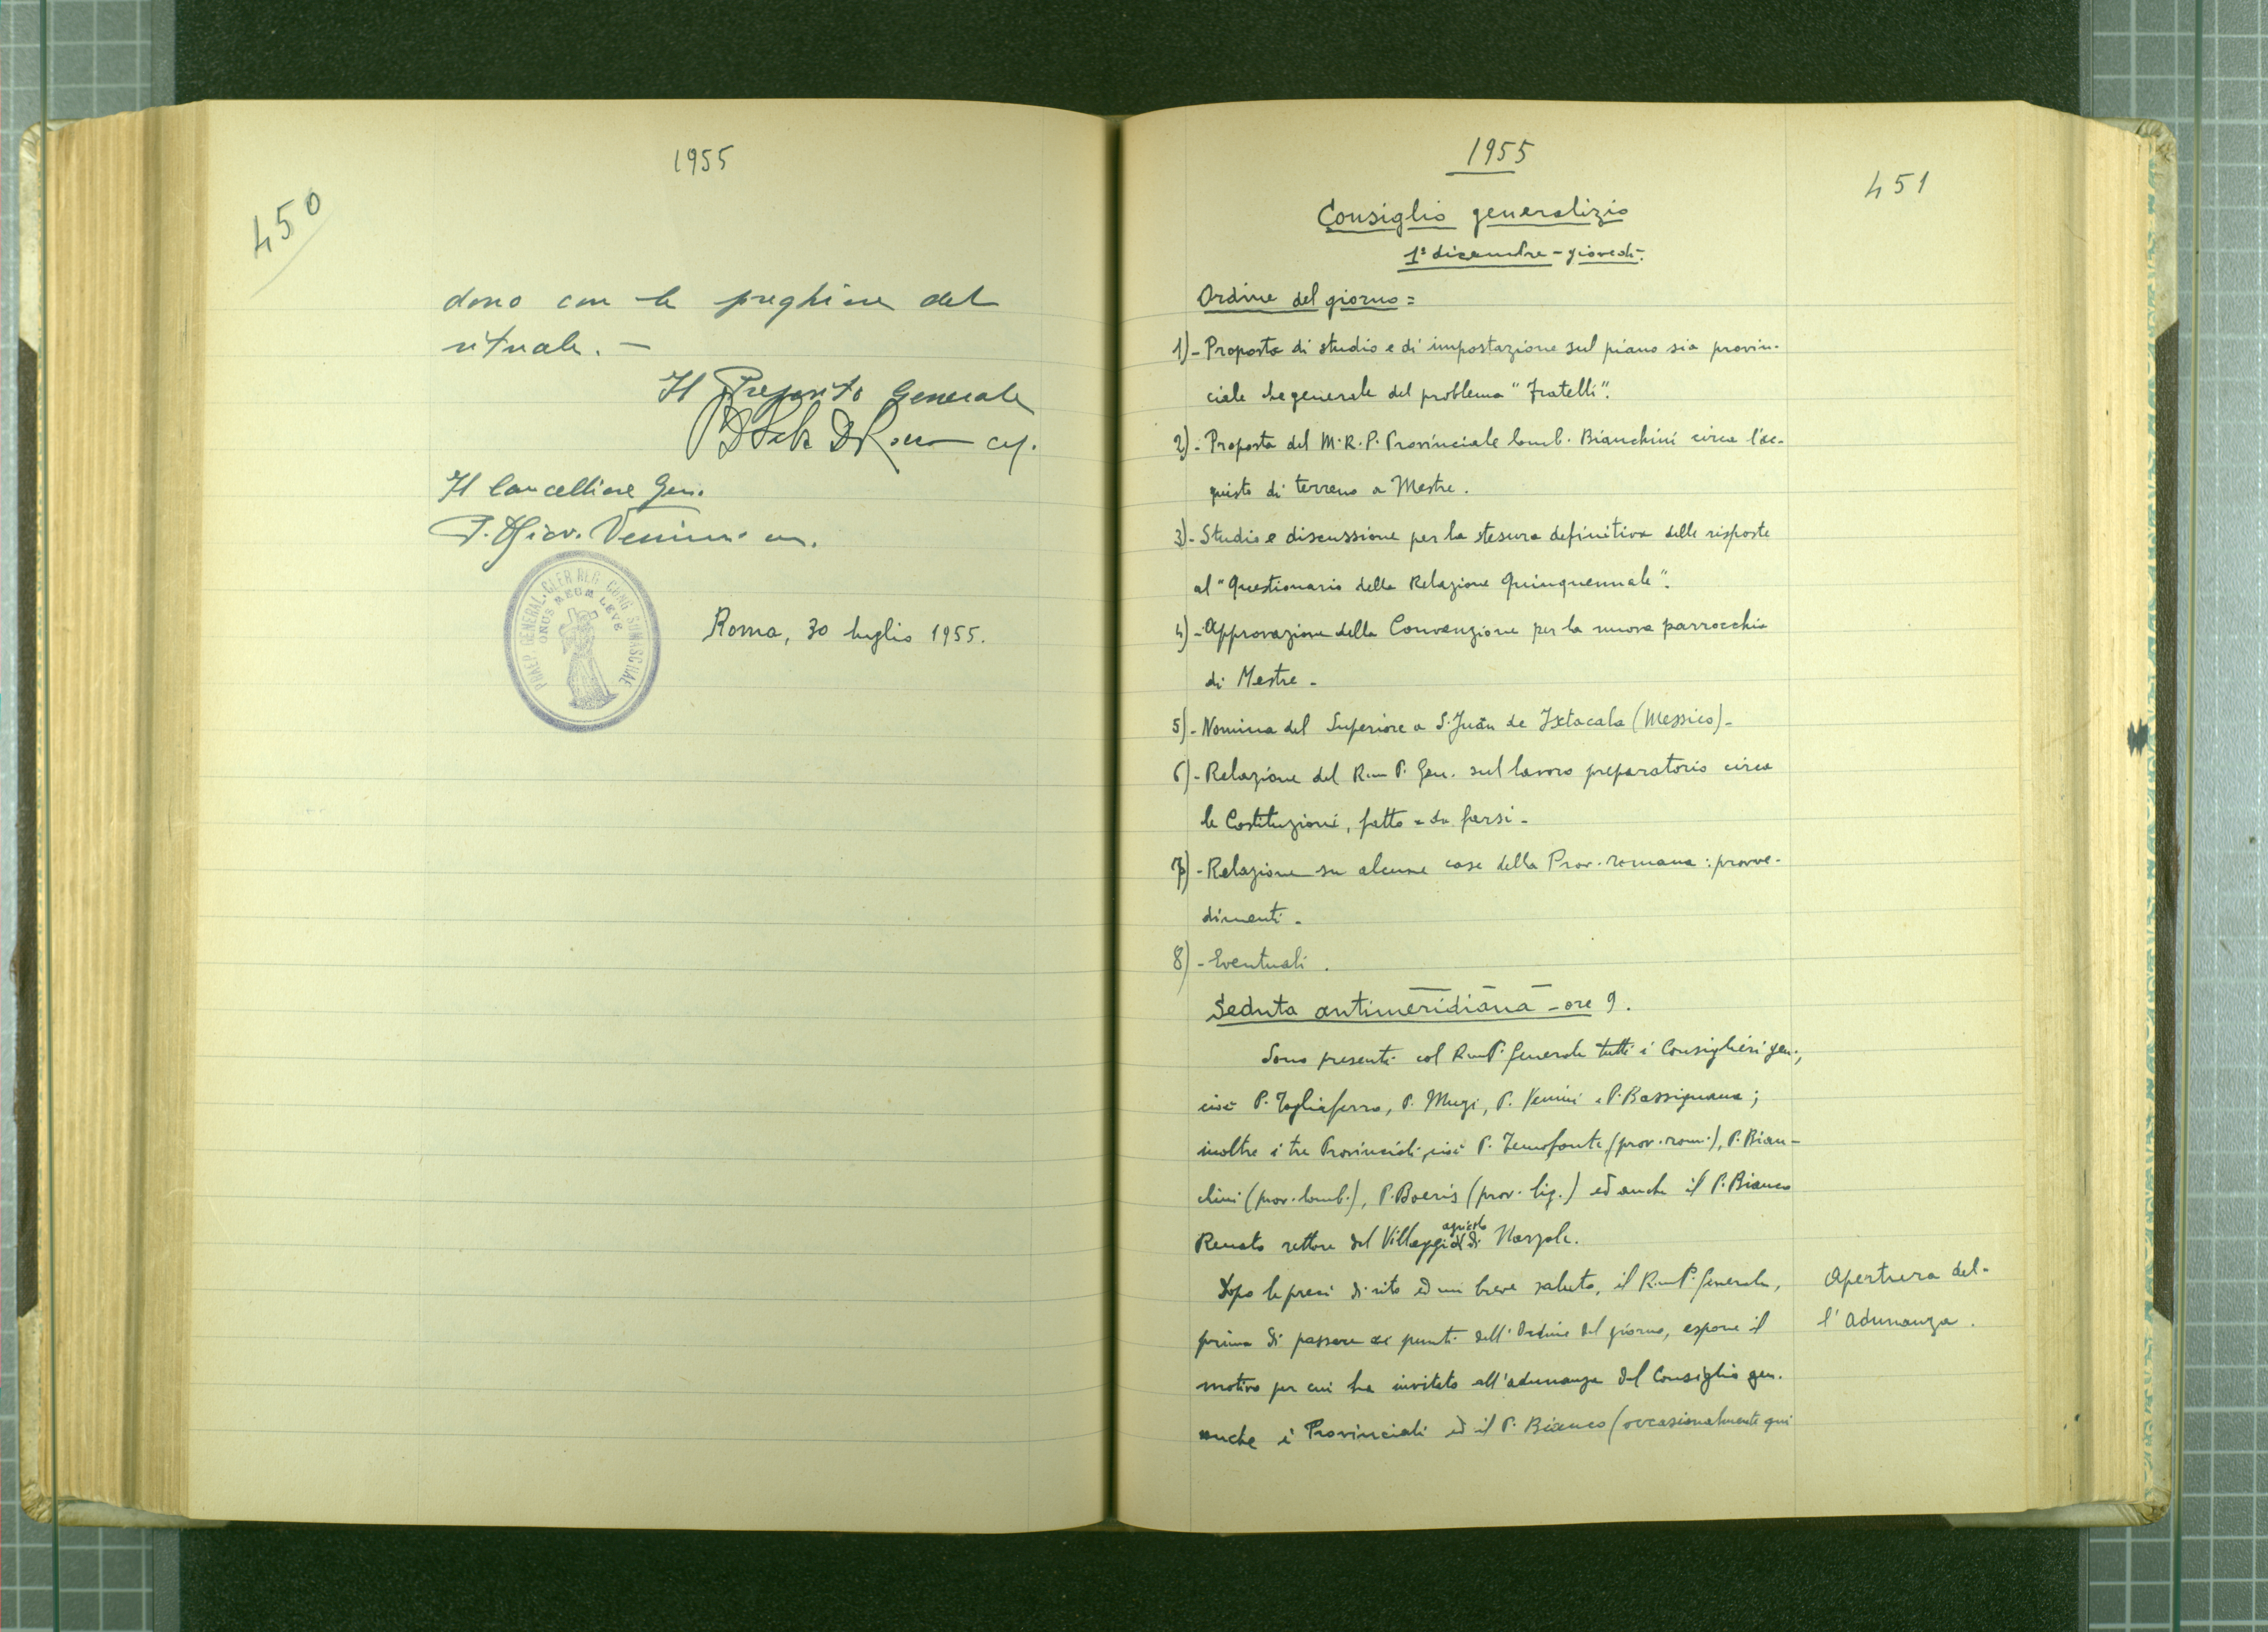 1955
450
dono con le preghiere del
rituale. —
Il Preposito Generale
Il Cancelliere Gen.
P. Giov. Venini
PRAEP. GENERAL. CLER. REG. CONG. SOMASCHAE
ONUS MEUM LEVE
Roma, 30 luglio 1955.
1955
451
Consiglio generalizio
1° dicembre - giovedì.
Ordine del giorno =
1) - Proposta di studio e di impostazione sul piano sia provin-
ciale che generale del problema "Fratelli".
2) - Proposta del M.R.P. Provinciale lomb. Bianchini circa l'ac-
quisto di terreno a Mestre.
3) - Studio e discussione per la stesura definitiva delle risposte
al "Questionario della Relazione Quinquennale".
4) - Approvazione della Convenzione per la nuova parrocchia
di Mestre -
5) - Nomina del Superiore a S. Juan de Ixtacala (Messico) -
6) - Relazione del Rev.mo P. Gen. sul lavoro preparatorio circa
le Costituzioni, fatto e da farsi -
7) - Relazione su alcune case della Prov. romana : provve-
dimenti -
8) - Eventuali .
Seduta antimeridiana - ore 9.
Sono presenti col Rev.mo P. Generale tutti i Consiglieri gen.,
cioè P. Tagliaferro, P. Muzi, P. Venini e P. Bassignana ;
inoltre i tre Provinciali, cioè P. Temofonte (prov. rom.), P. Bian-
chini (prov. lomb.), P. Boeris (prov. lig.) ed anche il P. Bianco
Renato rettore del Villaggio agricolo di Narzole.
Dopo le preci di rito ed un breve saluto, il Rev.mo P. Generale,
prima di passare ai punti dell'Ordine del giorno, espone il
motivo per cui ha invitato all'adunanza del Consiglio gen.
anche i Provinciali ed il P. Bianco (occasionalmente qui
Apertura del-
l'Adunanza .